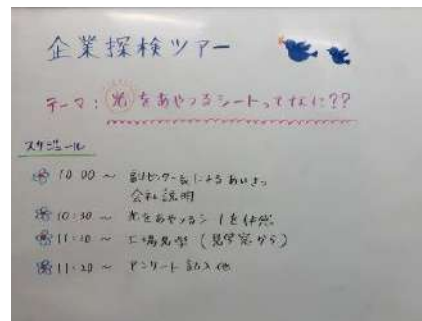 企業探検ツアー
テーマ：光をあやつるシートってなに??
スケジュール
10:00 ～ 副センター長によるあいさつ
会社説明
10:30 ～ 光をあやつるシートを体感
11:10 ～ 工場見学（見学窓から）
11:20 ～ アンケート記入他